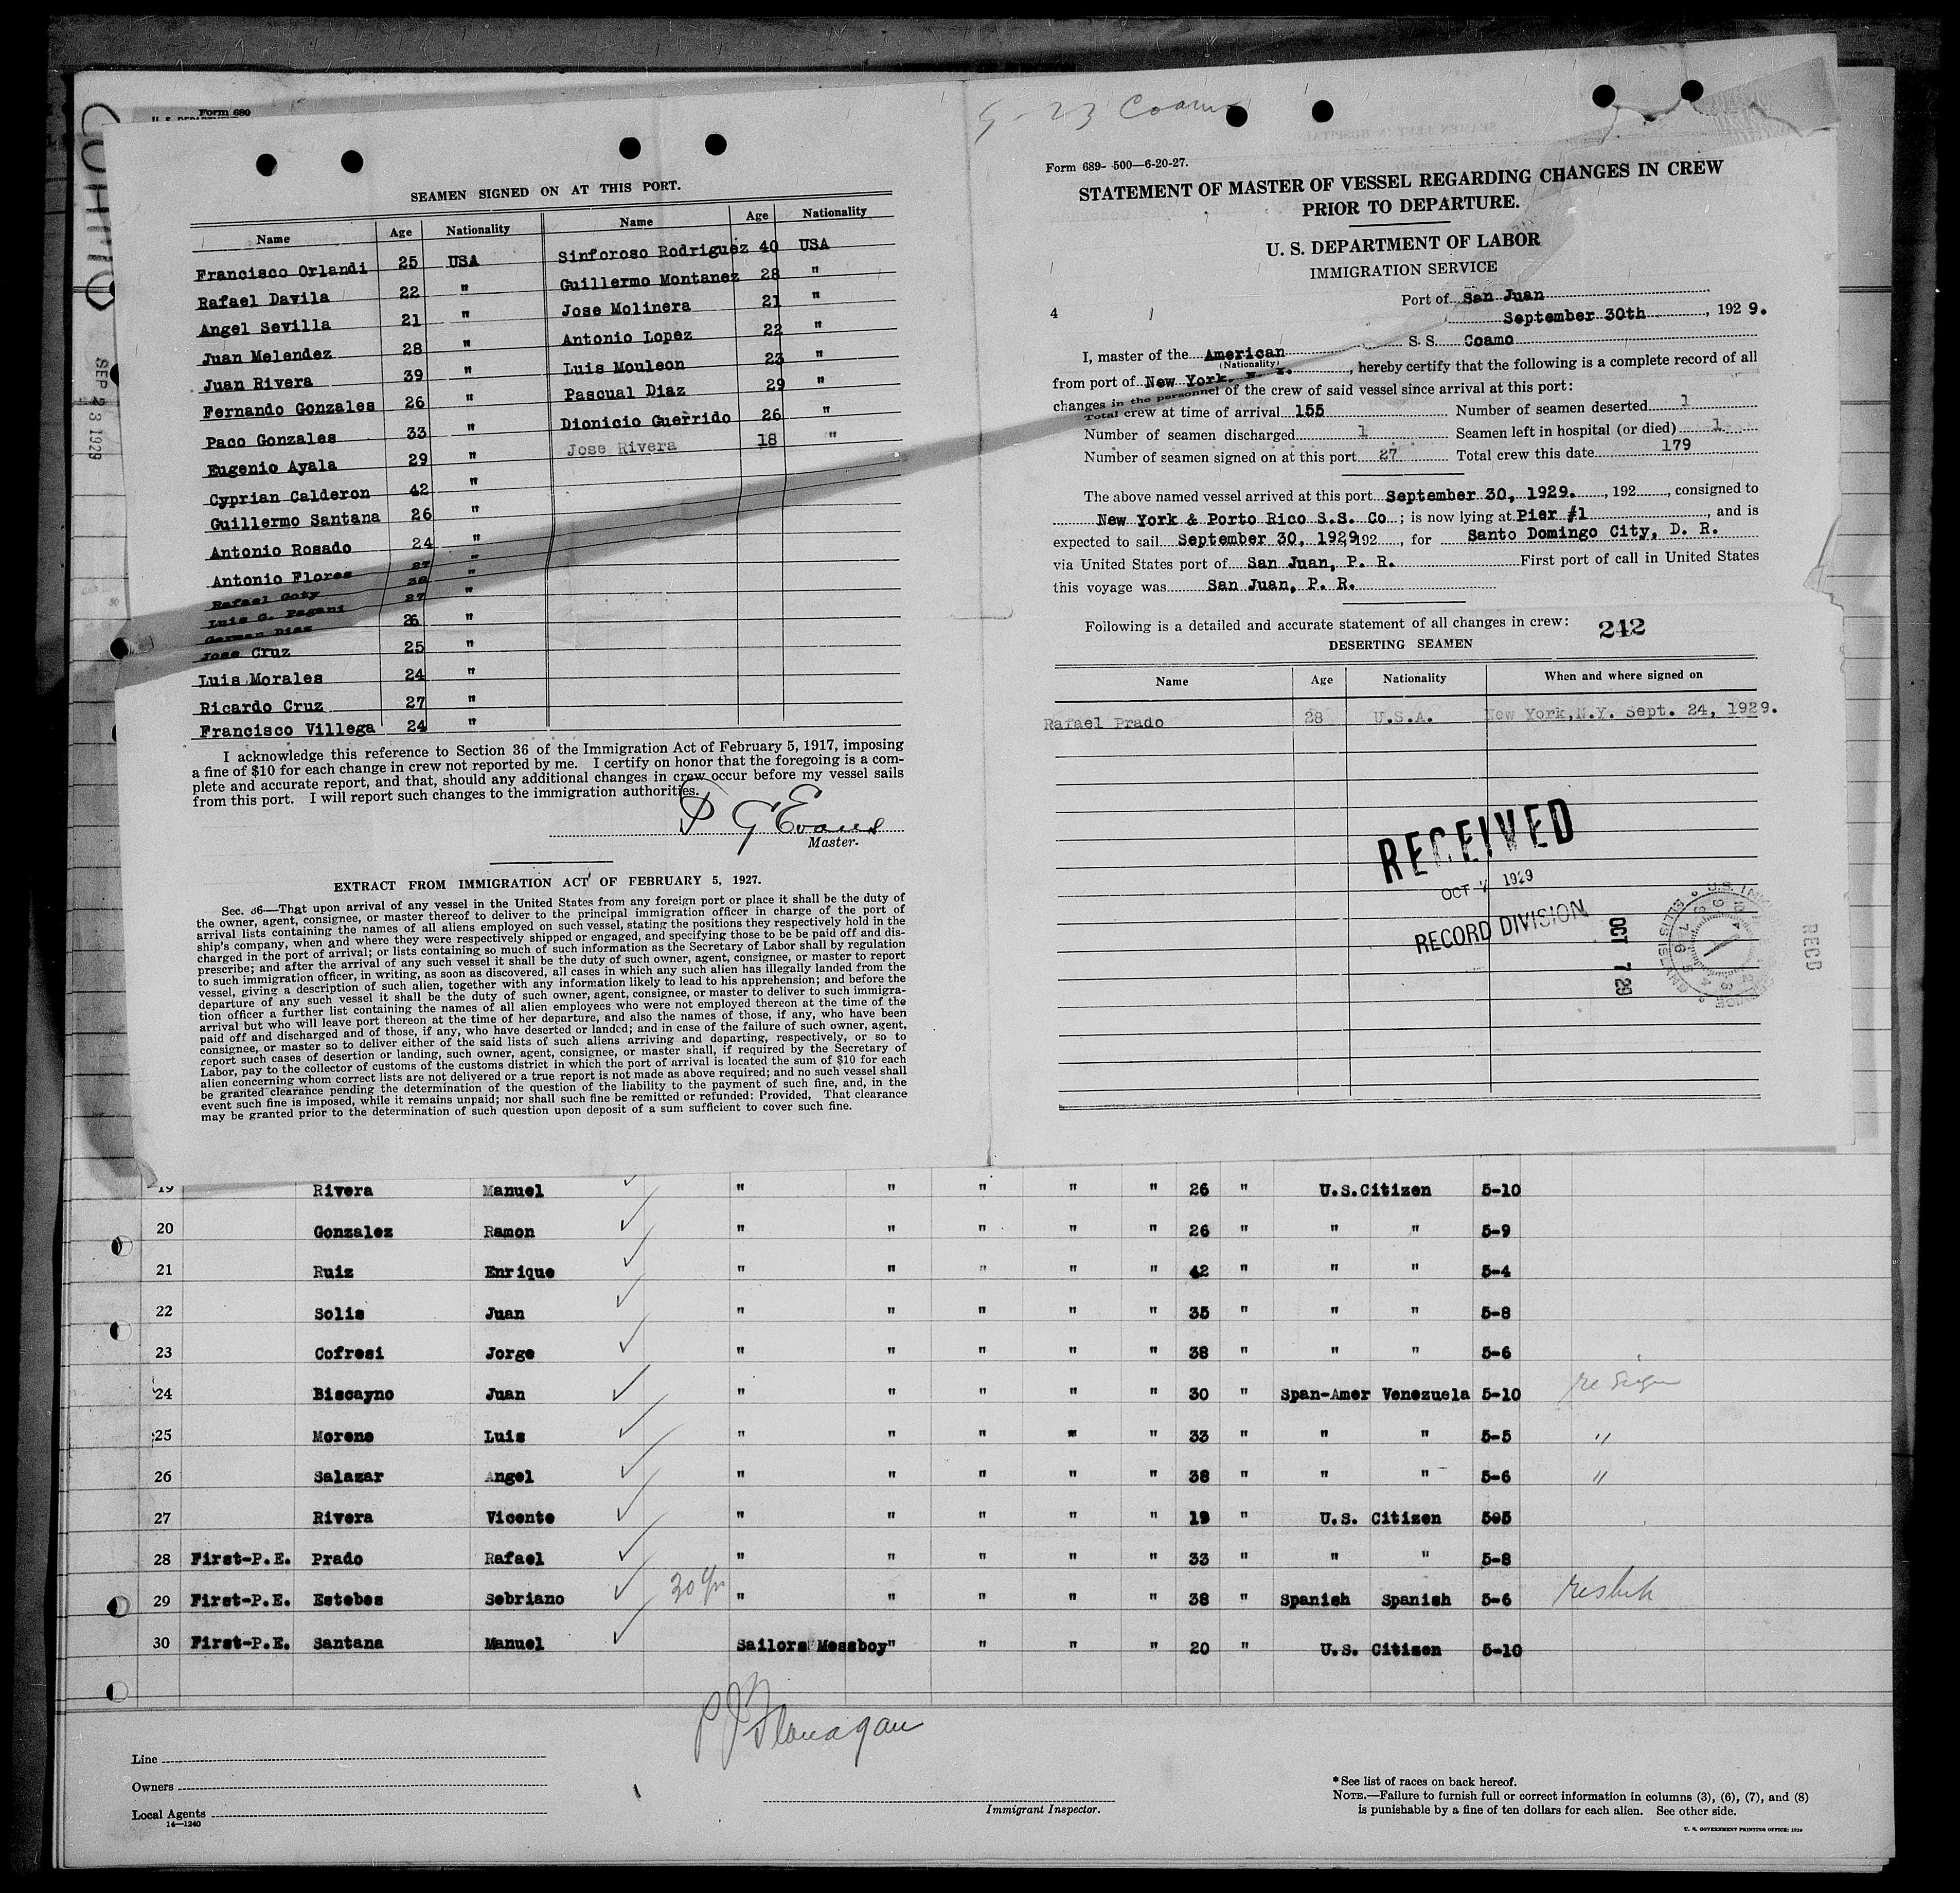 Form 680
SEP 23 1929
SEAMEN SIGNED ON AT THIS PORT.
Name Age Nationality Name Age Nationality
Francisco Orlandi 25 USA Sinforoso Rodriguez 40 USA
Rafael Davila 22 " Guillermo Montanez 28 "
Angel Sevilla 21 " Jose Molinera 21 "
Juan Melendez 28 " Antonio Lopez 22 "
Juan Rivera 39 " Luis Mouleon 23 "
Fernando Gonzales 26 " Pascual Diaz 29 "
Paco Gonzales 33 " Dionicio Guerrido 26 "
Eugenio Ayala 29 " Jose Rivera 18 "
Cyprian Calderon 42 "
Guillermo Santana 26 "
Antonio Rosado 24 "
Antonio Flores 27 "
Rafael Goty 38 "
Luis G. Pagani 27 "
German Diaz 26 "
Jose Cruz 25 "
Luis Morales 24 "
Ricardo Cruz 27 "
Francisco Villega 24 "
I acknowledge this reference to Section 36 of the Immigration Act of February 5, 1917, imposing
a fine of $10 for each change in crew not reported by me. I certify on honor that the foregoing is a com-
plete and accurate report, and that, should any additional changes in crew occur before my vessel sails
from this port. I will report such changes to the immigration authorities.
P G Evans
Master.
EXTRACT FROM IMMIGRATION ACT OF FEBRUARY 5, 1927.
Sec. 36—That upon arrival of any vessel in the United States from any foreign port or place it shall be the duty of
the owner, agent, consignee, or master thereof to deliver to the principal immigration officer in charge of the port of
arrival lists containing the names of all aliens employed on such vessel, stating the positions they respectively hold in the
ship's company, when and where they were respectively shipped or engaged, and specifying those to be be paid off and dis-
charged in the port of arrival; or lists containing so much of such information as the Secretary of Labor shall by regulation
prescribe; and after the arrival of any such vessel it shall be the duty of such owner, agent, consignee, or master to report
to such immigration officer, in writing, as soon as discovered, all cases in which any such alien has illegally landed from the
vessel, giving a description of such alien, together with any information likely to lead to his apprehension; and before the
departure of any such vessel it shall be the duty of such owner, agent, consignee, or master to deliver to such immigra-
tion officer a further list containing the names of all alien employees who were not employed thereon at the time of the
arrival but who will leave port thereon at the time of her departure, and also the names of those, if any, who have been
paid off and discharged and of those, if any, who have deserted or landed; and in case of the failure of such owner, agent,
consignee, or master so to deliver either of the said lists of such aliens arriving and departing, respectively, or so to
report such cases of desertion or landing, such owner, agent, consignee, or master shall, if required by the Secretary of
Labor, pay to the collector of customs of the customs district in which the port of arrival is located the sum of $10 for each
alien concerning whom correct lists are not delivered or a true report is not made as above required; and no such vessel shall
be granted clearance pending the determination of the question of the liability to the payment of such fine, and, in the
event such fine is imposed, while it remains unpaid; nor shall such fine be remitted or refunded: Provided, That clearance
may be granted prior to the determination of such question upon deposit of a sum sufficient to cover such fine.
9-23 Coamo
Form 689- 500—6-20-27.
STATEMENT OF MASTER OF VESSEL REGARDING CHANGES IN CREW
PRIOR TO DEPARTURE.
U. S. DEPARTMENT OF LABOR
IMMIGRATION SERVICE
Port of San Juan
4 September 30th , 192 9.
I, master of the American S. S. Coamo
(Nationality)
from port of New York. N. Y. , hereby certify that the following is a complete record of all
changes in the personnel of the crew of said vessel since arrival at this port:
Total crew at time of arrival 155 Number of seamen deserted 1
Number of seamen discharged 1 Seamen left in hospital (or died) 1
Number of seamen signed on at this port 27 Total crew this date 179
The above named vessel arrived at this port September 30, 1929. , 192 , consigned to
New York & Porto Rico S.S. Co ; is now lying at Pier #1 , and is
expected to sail September 30, 1929 192 , for Santo Domingo City, D. R.
via United States port of San Juan, P. R. First port of call in United States
this voyage was San Juan, P. R.
Following is a detailed and accurate statement of all changes in crew: 242
DESERTING SEAMEN
Name Age Nationality When and where signed on
Rafael Prado 28 U.S.A. New York,N.Y. Sept. 24, 1929.
RECEIVED
OCT 7 1929
RECORD DIVISION
OCT 7 29
RECD
19 Rivera Manuel " " " " " 26 " U.S.Citizen 5-10
20 Gonzalez Ramon " " " " " 26 " " " 5-9
21 Ruiz Enrique " " " " " 42 " " " 5-4
22 Solis Juan " " " " " 35 " " " 5-8
23 Cofresi Jorge " " " " " 38 " " " 5-6
24 Biscayno Juan " " " " " 30 " Span-Amer Venezuela 5-10 resign
25 Moreno Luis " " " " " 33 " " " 5-5 "
26 Salazar Angel " " " " " 38 " " " 5-6 "
27 Rivera Vicente " " " " " 19 " U.S. Citizen 505
28 First-P.E. Prado Rafael " " " " " 33 " " " 5-8
29 First-P.E. Estebes Sebriano " " " " " 38 " Spanish Spanish 5-6
30 First-P.E. Santana Manuel Sailors Messboy" " " " 20 " U.S. Citizen 5-10
P J Flanagan
Line
Owners
Local Agents
14—1240
Immigrant Inspector.
*See list of races on back hereof.
NOTE.—Failure to furnish full or correct information in columns (3), (6), (7), and (8)
is punishable by a fine of ten dollars for each alien. See other side.
U. S. GOVERNMENT PRINTING OFFICE: 1929